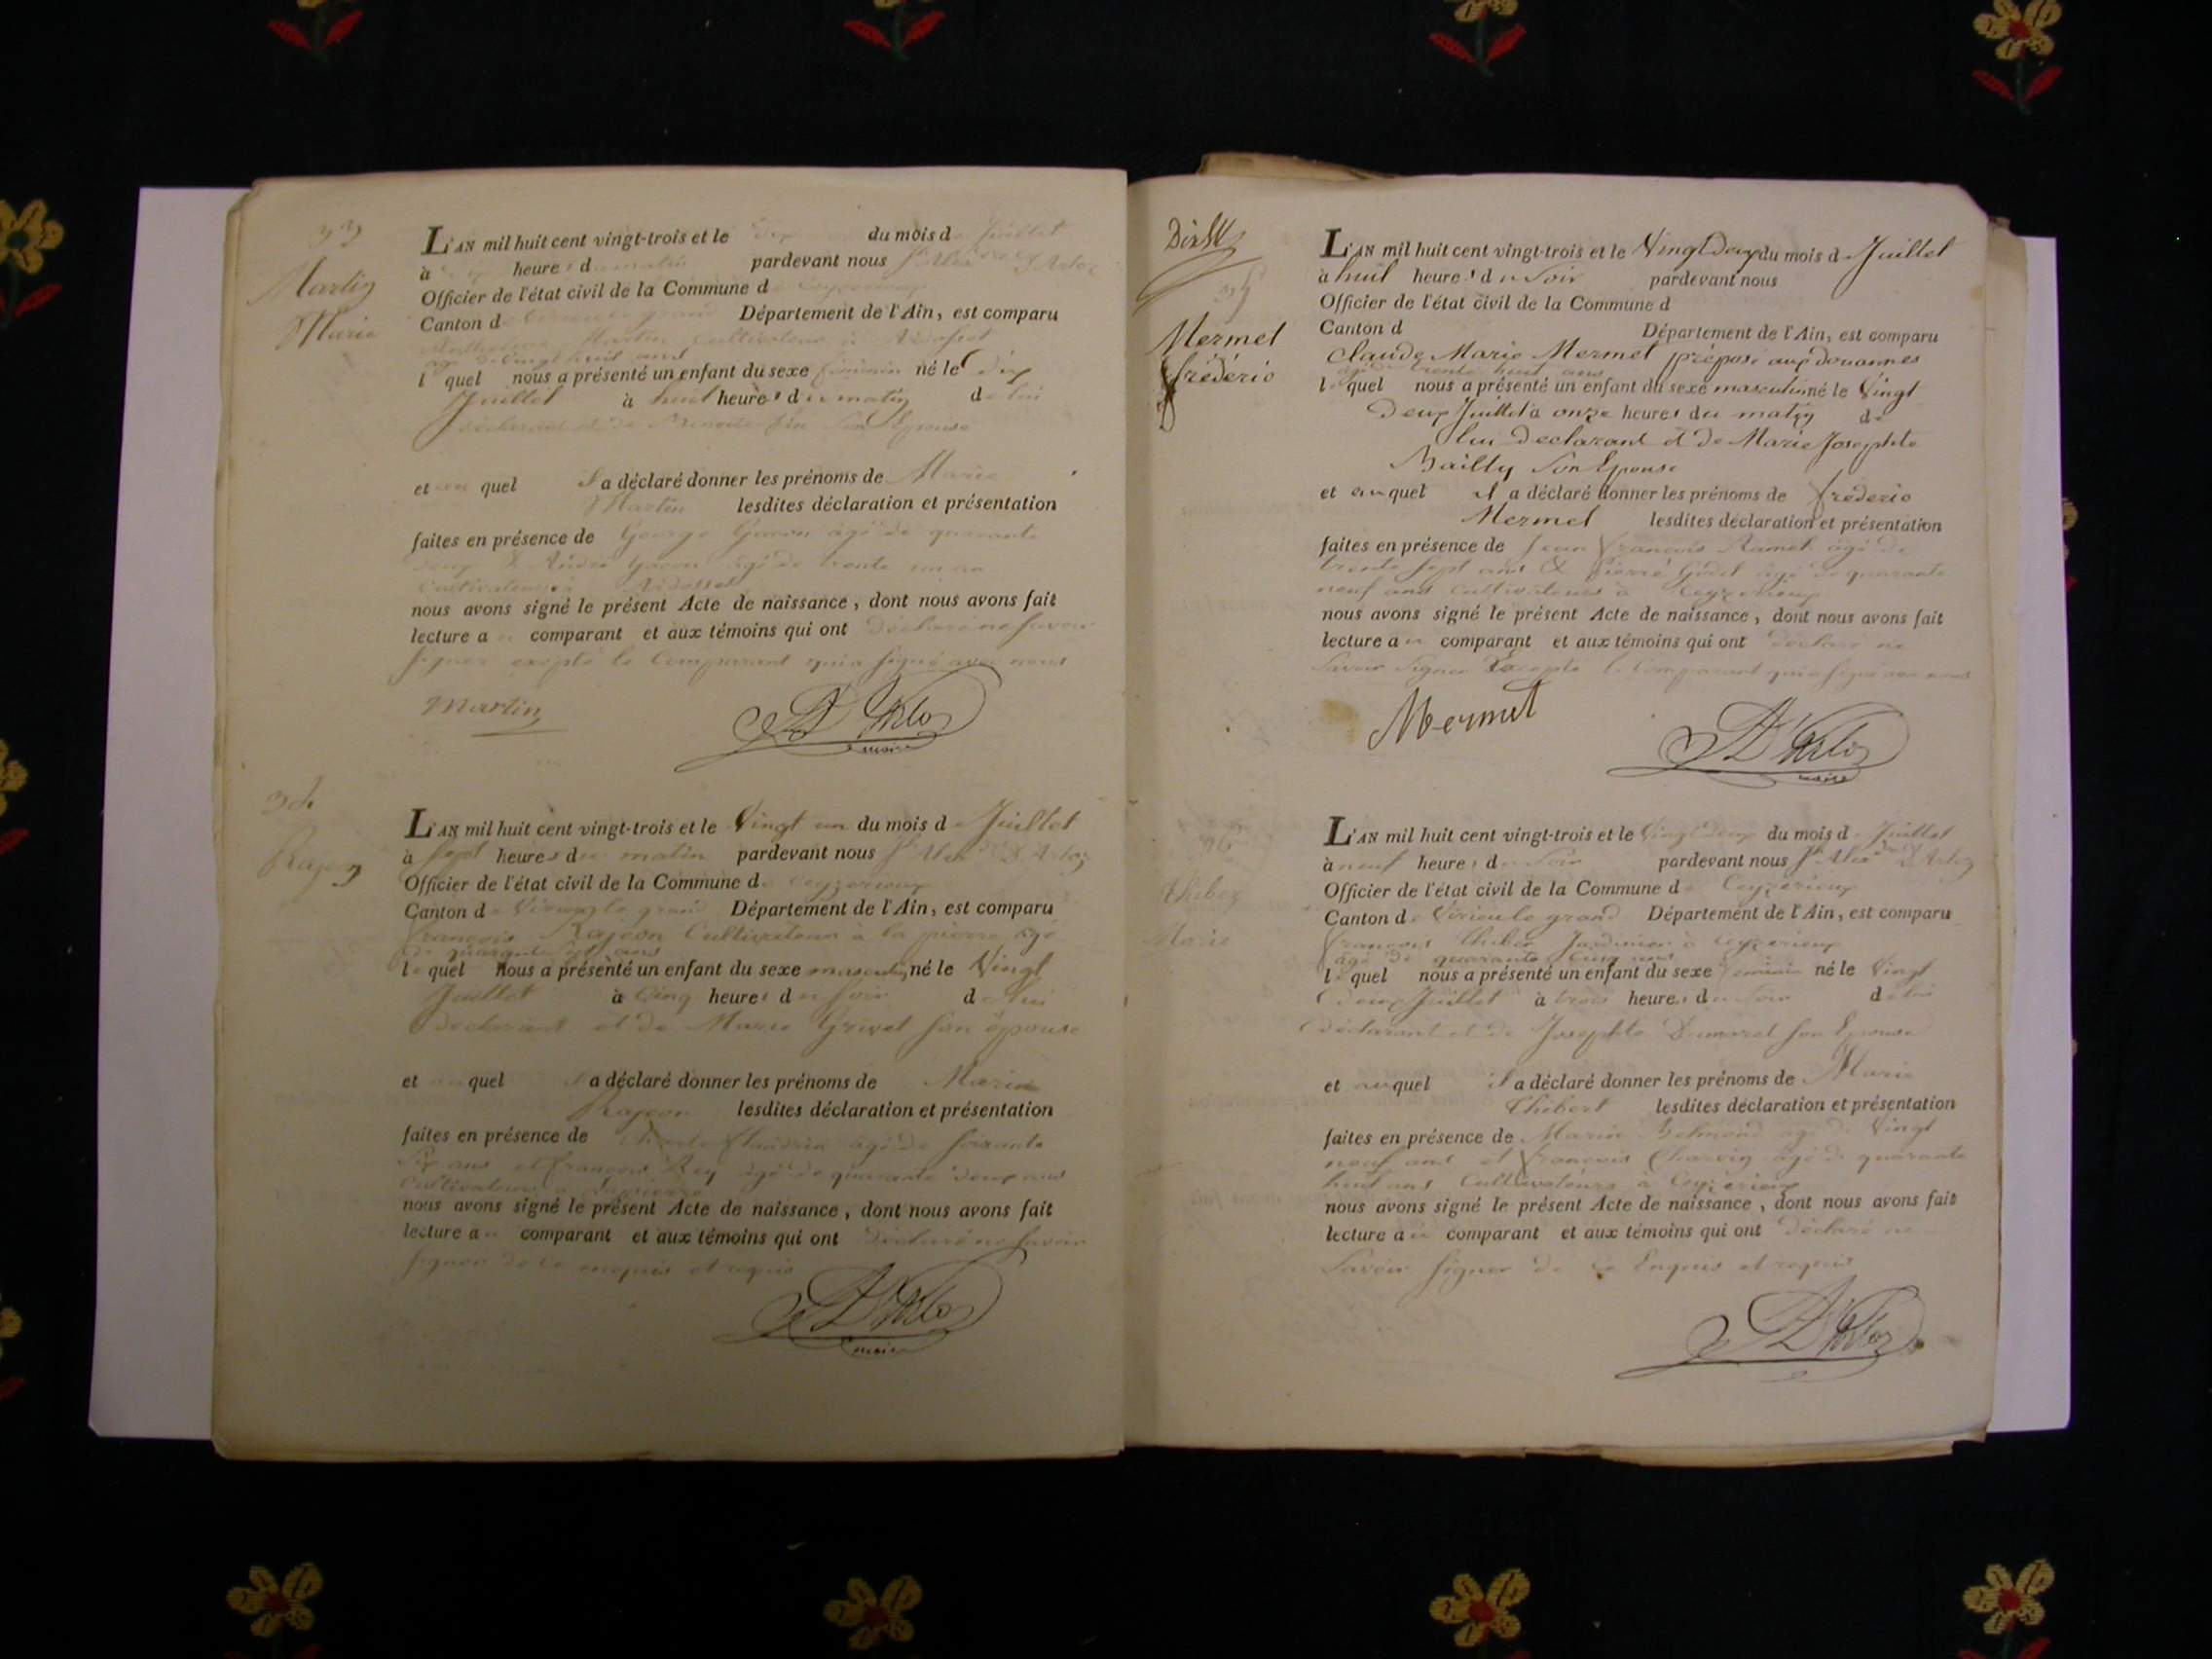 33
Martin
Marie
L'AN mil huit cent vingt-trois et le dix du mois de Juillet
à heures du matin pardevant nous
Officier de l'état civil de la Commune d
Canton de Virieu le grand Département de l'Ain, est comparu
Martin cultivateur à
âgé de vingt huit ans
lequel nous a présenté un enfant du sexe féminin né le dix
Juillet à huit heures du matin de lui
déclarant et de son Epouse
et au quel il a déclaré donner les prénoms de Marie
Martin lesdites déclaration et présentation
faites en présence de George Gacon âgé de quarante
deux & André Gacon âgé de trente un an
cultivateurs à
nous avons signé le présent Acte de naissance, dont nous avons fait
lecture au comparant et aux témoins qui ont déclaré ne savoir
signer excepté le Comparant qui a signé avec nous
Martin
maire
34
Rajeon
L'AN mil huit cent vingt-trois et le Vingt un du mois de Juillet
à sept heures du matin pardevant nous
Officier de l'état civil de la Commune de Ceyzerieux
Canton de Virieu le grand Département de l'Ain, est comparu
françois Rajeon Cultivateur à la pierre âgé
de quarante ans
lequel nous a présenté un enfant du sexe masculin né le Vingt
Juillet à Cinq heures du soir de lui
declarant et de Marie Grivet son épouse
et au quel il a déclaré donner les prénoms de
Rajeon lesdites déclaration et présentation
faites en présence de âgé de soixante
Six ans et françois Rey âgé de quarante deux ans
Cultivateurs à
nous avons signé le présent Acte de naissance, dont nous avons fait
lecture au comparant et aux témoins qui ont déclaré ne savoir
signer de ce enquis et requis
maire
35
Mermet
fréderic
L'AN mil huit cent vingt-trois et le Vingt Deux du mois de Juillet
à huit heures du Soir pardevant nous
Officier de l'état civil de la Commune d
Canton d Département de l'Ain, est comparu
Claude Marie Mermet préposé aux douannes
âgé de trente huit ans
lequel nous a présenté un enfant du sexe masculin né le Vingt
Deux Juillet à onze heures du matin de
lui declarant et de Marie Josephte
Bailly Son Epouse
et auquel il a déclaré donner les prénoms de fréderic
Mermet lesdites déclaration et présentation
faites en présence de Jean françois Ramel âgé de
trente sept ans & Pierre Godet âgé de quarante
neuf ans cultivateurs à Ceyzerieux
nous avons signé le présent Acte de naissance, dont nous avons fait
lecture au comparant et aux témoins qui ont déclaré ne
Savoir Signer Excepté le Comparant qui a signé avec nous
Mermet
maire
36
Thiber
Marie
L'AN mil huit cent vingt-trois et le Vingt deux du mois de Juillet
à neuf heures du Soir pardevant nous
Officier de l'état civil de la Commune de Ceyzerieux
Canton de Virieu le grand Département de l'Ain, est comparu
françois Thiber Jardinier à Ceyzerieux
âgé de quarante cinq ans
lequel nous a présenté un enfant du sexe féminin né le Vingt
Deux Juillet à trois heures du Soir de lui
déclarant et de Josephte Dumarel son Epouse
et auquel il a déclaré donner les prénoms de Marie
Thibert lesdites déclaration et présentation
faites en présence de Marin Belmond âgé de Vingt
neuf ans et françois Charvin âgé de quarante
huit ans Cultivateurs à Ceyzerieux
nous avons signé le présent Acte de naissance, dont nous avons fait
lecture au comparant et aux témoins qui ont déclaré ne
Savoir Signer de ce Enquis et requis